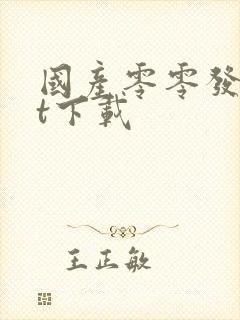 國產零零發
t下載
王正敏